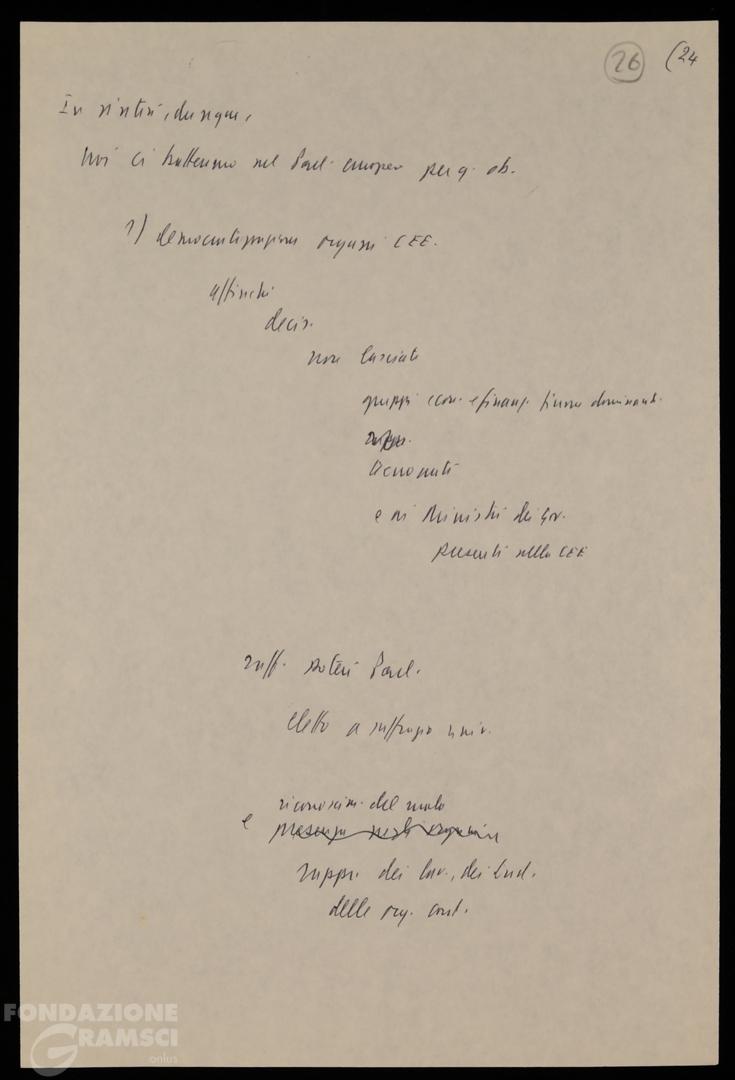 26 (24
In sintesi, dunque,
Noi ci batteremo nel Parl. europeo per q. ob.
1) democratizzazione organi CEE.
affinché
decis.
non lasciate
gruppi econ. e finanz. finora dominanti
tecnocrati
e ai Ministri dei Gov.
presenti nella CEE
raff. poteri Parl.
eletto a suffragio univ.
riconoscim. del ruolo
e presenza negli organismi
rappr. dei lav., dei sind.
delle org. cont.
FONDAZIONE
GRAMSCI
onlus